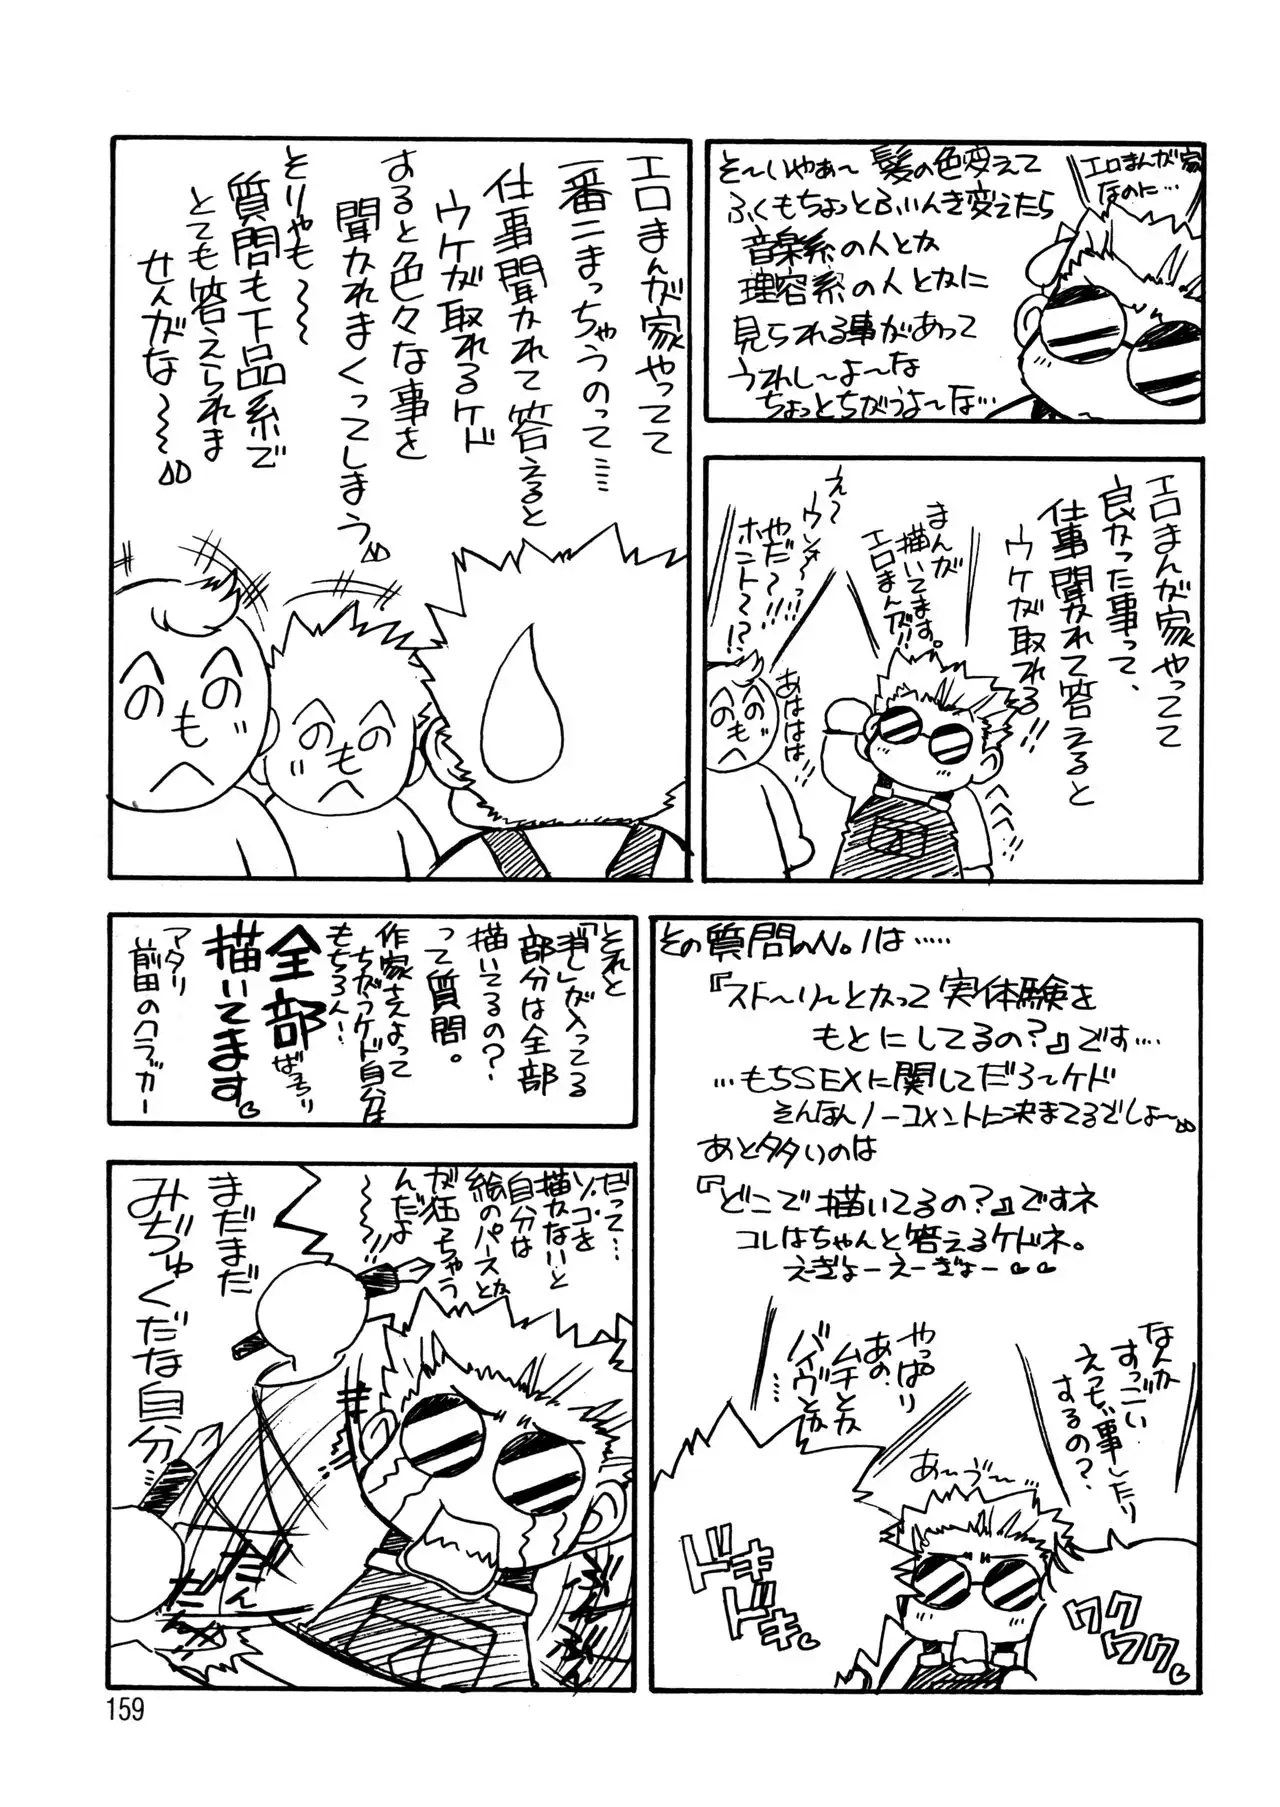 エロまんが家
なのに…
そ～いやぁ～髪の色変えて
ふくもちょっとふいんき変えたら
音楽系の人とか
理容系の人とかに
見られる事があって
うれし～よ～な
ちょっとちがうよ～な…
エロまんが家やってて
良かった事って、
仕事聞かれて答えると
ウケが取れる!!
まんが
描いてます。
エロまんが!!
え～
ウッソ～っ!!
やだ～!!!
ホント～!?
あははは
へへへ
エロまんが家やってて
一番こまっちゃうのって……
仕事聞かれて答えると
ウケが取れるケド
あると色々な事を
聞かれまくってしまう
とりゃも～～
質問も下品系で
とても答えられま
せんがな～～
へのへのもへ
へのへのもへ
その質問のNo.1は……
『スト～リ～とかって実体験を
もとにしてるの?』です…
…もちSEXに関してだろ～ケド
そんなんノーコメントに決まてるでしょ～
あと多いのは
『どこで描いてるの?』ですネ
コレはちゃんと答えるケドネ。
えぎょーえーぎょー♡♡
なんか
すっごい
えっちぃ事したり
するの?
やっぱり
あの、
ムチとか
バイヴとか
…
あ～う～
ドキドキ
ワクワク
それと
「消し」が入ってる
部分は全部
描いてるの?
って質問。
作家さんよって
ちがうケド自分は
もちろん!
全部ばっちり
描いてます。
アタリ
前田のクラブカー
だって…
ソコを
描かないと
自分は
絵のパースとか
が狂っちゃう
んだよ
～～～!!
まだまだ
みぢゅくだな自分
だん
だんっ
ぶんぶん
159